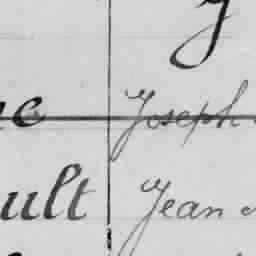 ne Joseph
ult Jean